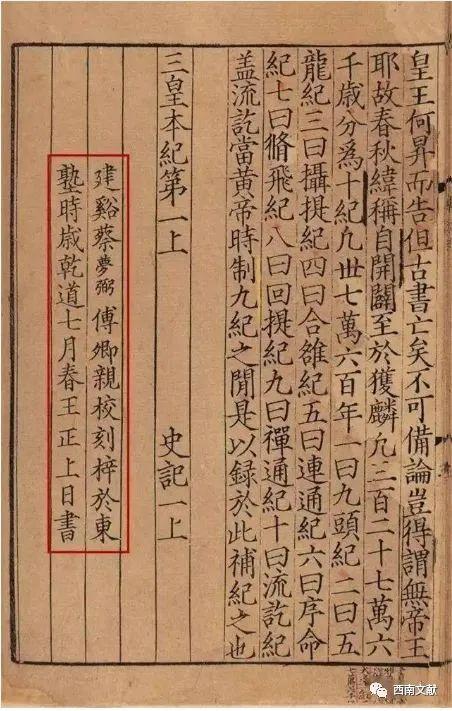 皇王何昇而告但古書亡矣不可備論豈得謂無帝王
耶故春秋緯稱自開闢至於獲麟九三百二十七萬六
千歲分爲十紀九丗七萬六百年一曰九頭紀二曰五
龍紀三曰攝提紀四曰合雒紀五曰連通紀六曰序命
紀七曰脩飛紀八曰回提紀九曰禪通紀十曰流訖紀
盖流訖當黄帝時制九紀之閒是以録於此補紀之也
三皇本紀第一上 史記一上
建谿蔡夢弼傅卿親校刻梓於東
塾時歲乾道七月春王正上日書
西南文献